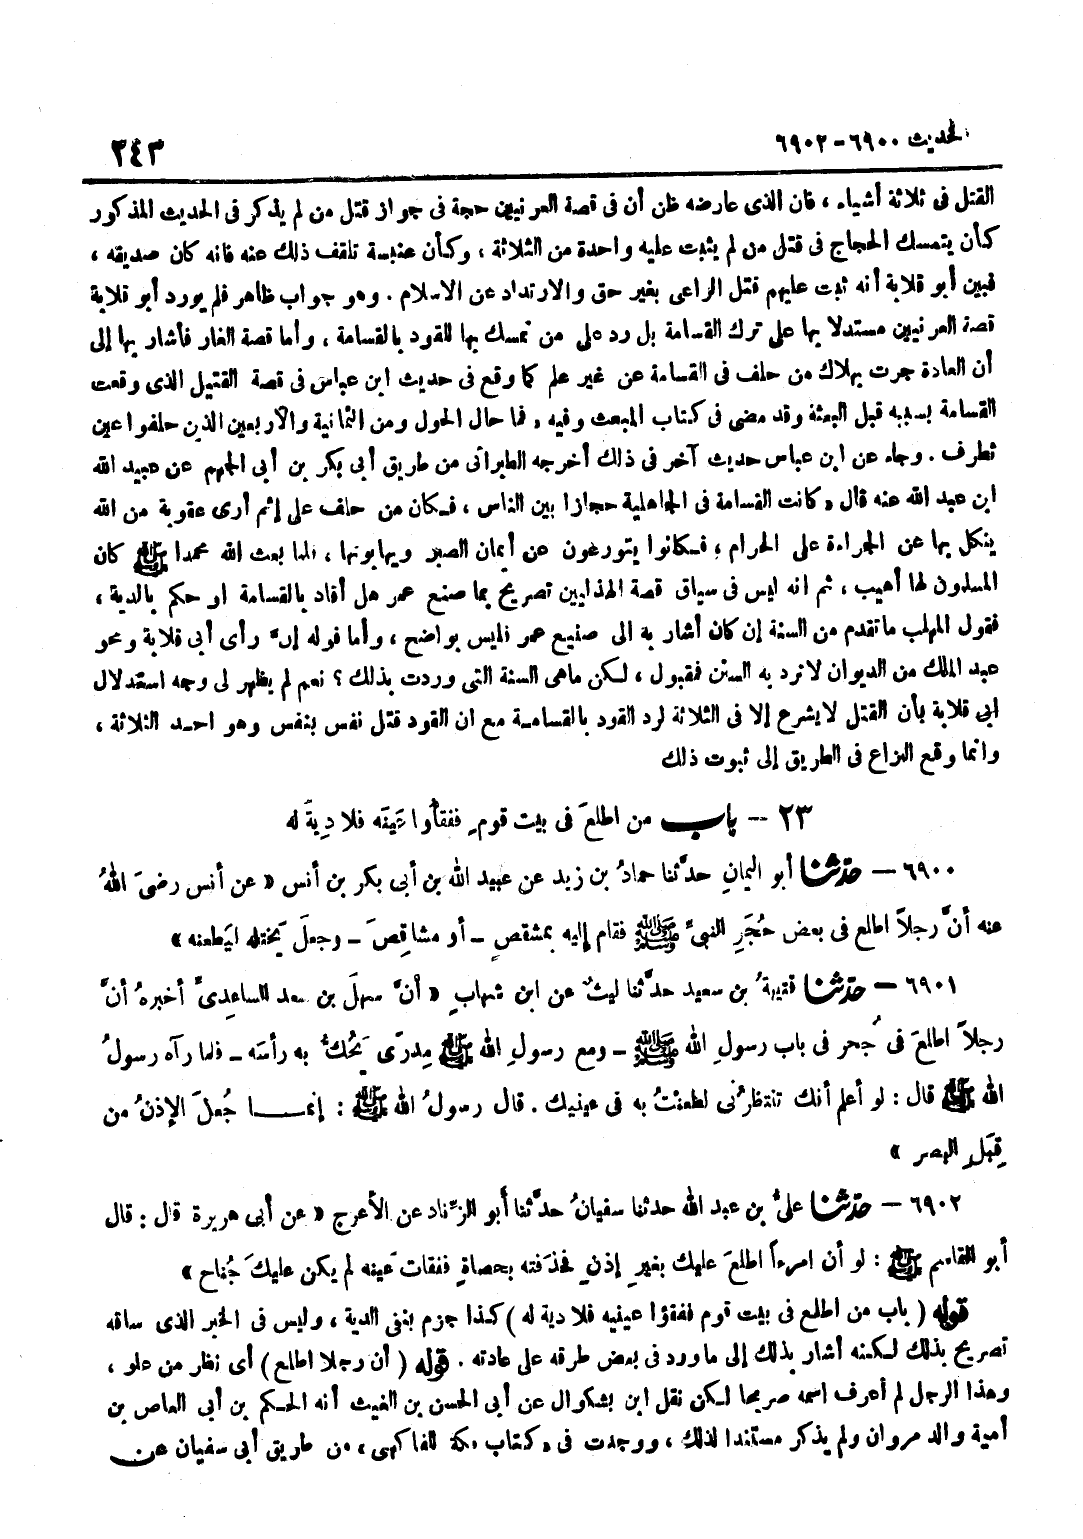 الحديث ٦٩٠٠-٦٩٠٢ ٢٤٣
القتل فى ثلاثة أشياء ، فان الذى عارضه ظن أن فى قصة العرنيين حجة فى جواز قتل من لم يذكر فى الحديث المذكور
كأن يتمسك الحجاج فى قتل من لم يثبت عليه واحدة من الثلاثة ، وكأن عنبسة تلقف ذلك عنه فانه كان صديقه ،
فبين أبو قلابة أنه ثبت عليهم قتل الراعى بغير حق والارتداد عن الاسلام . وهو جواب ظاهر فلم يورد أبو قلابة
قصة العرنيين مستدلا بها على ترك القسامة بل رد على من تمسك بها للقود بالقسامة ، وأما قصة الغار فأشار بها إلى
أن العادة جرت بهلاك من حلف فى القسامة عن غير علم كما وقع فى حديث ابن عباس فى قصة القتيل الذى وقعت
القسامة بسببه قبل البعثة وقد مضى فى كتاب المبعث وفيه « فما حال الحول ومن الثمانية والاربعين الذين حلفوا عين
تطرف . وجاء عن ابن عباس حديث آخر فى ذلك أخرجه الطبرانى من طريق أبى بكر بن أبى الجهم عن عبيد الله
ابن عبد الله عنه قال « كانت القسامة فى الجاهلية حجازا بين الناس ، فكان من حلف على إثم أرى عقوبة من الله
ينكل بها عن الجراءة على الحرام ، فكانوا يتورعون عن أيمان الصبر ويهابونها ، فلما بعث الله محمدا ﷺ كان
المسلمون لها أهيب ، ثم انه ليس فى سياق قصة الهذليين تصريح بما صنع عمر هل أقاد بالقسامة او حكم بالدية ،
فقول المهلب ماتقدم من السنة إن كان أشار به الى صنيع عمر فليس بواضح ، وأما قوله إن رأى أبى قلابة ومحو
عبد الملك من الديوان لا ترد به السنن فمقبول ، لكن ماهى السنة التى وردت بذلك ؟ نعم لم يظهر لى وجه استدلال
ابى قلابة بأن القتل لايشرع إلا فى الثلاثة لرد القود بالقسامة مع ان القود قتل نفس بنفس وهو احد الثلاثة ،
وانما وقع النزاع فى الطريق إلى ثبوت ذلك
٢٣ -- باب من اطلعَ فى بيت قومٍ ففقأوا عَينَه فلا ديةَ له
٦٩٠٠ – حدّثنا أبو اليمانِ حدَّثنا حمادُ بن زيد عن عبيد الله بن أبى بكر بن أنس « عن أنس رضىَ اللهُ
عنه أنَّ رجلاً اطلع فى بعض حُجَرِ النبىِّ ﷺ فقام إليه بمشقصٍ – أو مشاقصَ – وجعلَ يَختله ليَطعنه »
٦٩٠١ – حدّثنا قتيبةُ بن سعيد حدَّثنا ليثٌ عن ابن شهابٍ « أنَّ سهلَ بن سعد الساعدِىَّ أخبرهُ أنَّ
رجلاً اطلعَ فى جُحر فى باب رسولِ الله ﷺ – ومع رسولِ الله ﷺ مِدرًى يَحُكُّ به رأسَه – فلما رآه رسولُ
الله ﷺ قال : لو أعلم أنك تنتظرُنى لطعنتُ به فى عينيك . قال رسولُ الله ﷺ : إنمـــا جُعلَ الإذنُ من
قِبَلِ البصر »
٦٩٠٢ – حدّثنا علىُّ بن عبد الله حدثنا سفيانُ حدَّثنا أبو الزّناد عن الأعرج « عن أبى هريرة قال : قال
أبو القاسم ﷺ : لو أن امرءاً اطلعَ عليك بغيرِ إذنٍ فخذفته بحصاةٍ ففقأت عينه لم يكن عليكَ جُناح »
قوله ( باب من اطلع فى بيت قوم ففقؤا عينيه فلا دية له ) كذا جزم بنفى الدية ، وليس فى الخبر الذى ساقه
تصريح بذلك لكنه أشار بذلك إلى ماورد فى بعض طرقه على عادته . قوله ( أن رجلا اطلع ) أى نظر من علو ،
وهذا الرجل لم أعرف اسمه صريحا لكن نقل ابن بشكوال عن أبى الحسن بن الغيث أنه الحكم بن أبى العاص بن
أمية والد مروان ولم يذكر مستندا لذلك ، ووجدت فى « كتاب مكة للفاكهى » من طريق أبى سفيان عن